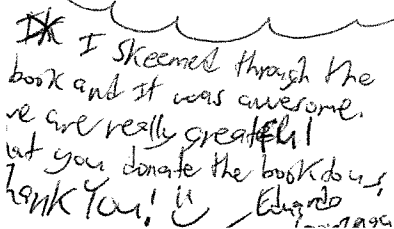 I skeemed through the
book and It was awesome.
we are really greatful
hat you donate the book to us,
hank You! Eduardo